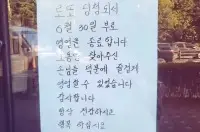 로또 당첨되어
6월 30일 부로
영업을 종료합니다
그동안 찾아주신
손님들 덕분에 즐겁게
영업할 수 있었습니다
감사합니다
항상 건강하시고
행복 하십시오